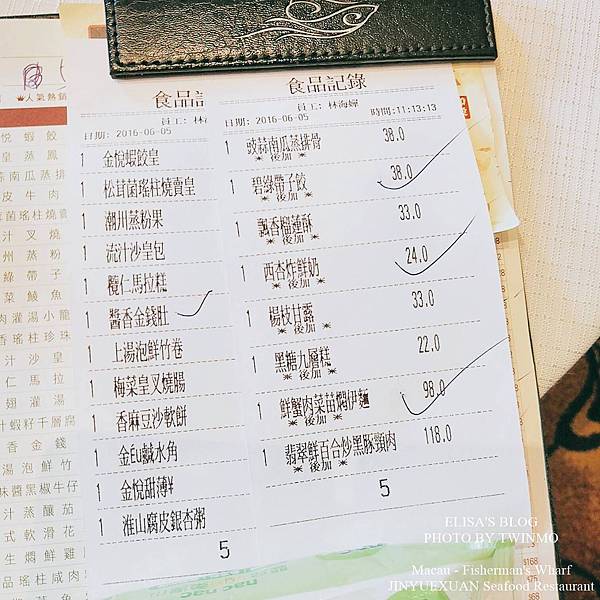 食品記錄
員工: 林海嬋
日期: 2016-06-05 時間:11:13:13
1 豉蒜南瓜蒸排骨 38.0
※ 後加 ※
1 碧綠帶子餃 38.0
※ 後加 ※
1 飄香榴蓮酥 33.0
※ 後加 ※
1 西杏炸鮮奶 24.0
※ 後加 ※
1 楊枝甘露 33.0
※ 後加 ※
1 黑糖九層糕 22.0
※ 後加 ※
1 鮮蟹肉菜苗燜伊麵 98.0
※ 後加 ※
1 翡翠鮮百合炒黑豚頸肉 118.0
※ 後加 ※
5
食品
員工: 林
日期: 2016-06-05
1 金悅蝦餃皇
1 松茸菌瑤柱燒賣皇
1 潮州蒸粉果
1 流汁沙皇包
1 欖仁馬拉糕
1 醬香金錢肚
1 上湯泡鮮竹卷
1 梅菜皇叉燒腸
1 香麻豆沙軟餅
1 金Eu鹹水角
1 金悅甜薄¥
1 淮山腐皮銀杏粥
5
人氣熱銷
悅蝦餃
皇蒸鳳
南瓜蒸排
皮牛肉
菌瑤柱燒賣
汁叉燒
州蒸粉
綠帶子
菜鯪魚
肉灌湯小籠
香瑤柱珍珠
汁沙皇
仁馬拉
翅灌湯
蟹籽千層腐
香金錢
湯泡鮮竹
味醬黑椒牛仔
汁蒸釀茄
式軟滑花
生燜鮮雞
品瑤柱咸肉
nac nac
ELISA'S BLOG
PHOTO BY TWINMO
Macau - Fisherman's Wharf
JINYUEXUAN Seafood Restaurant